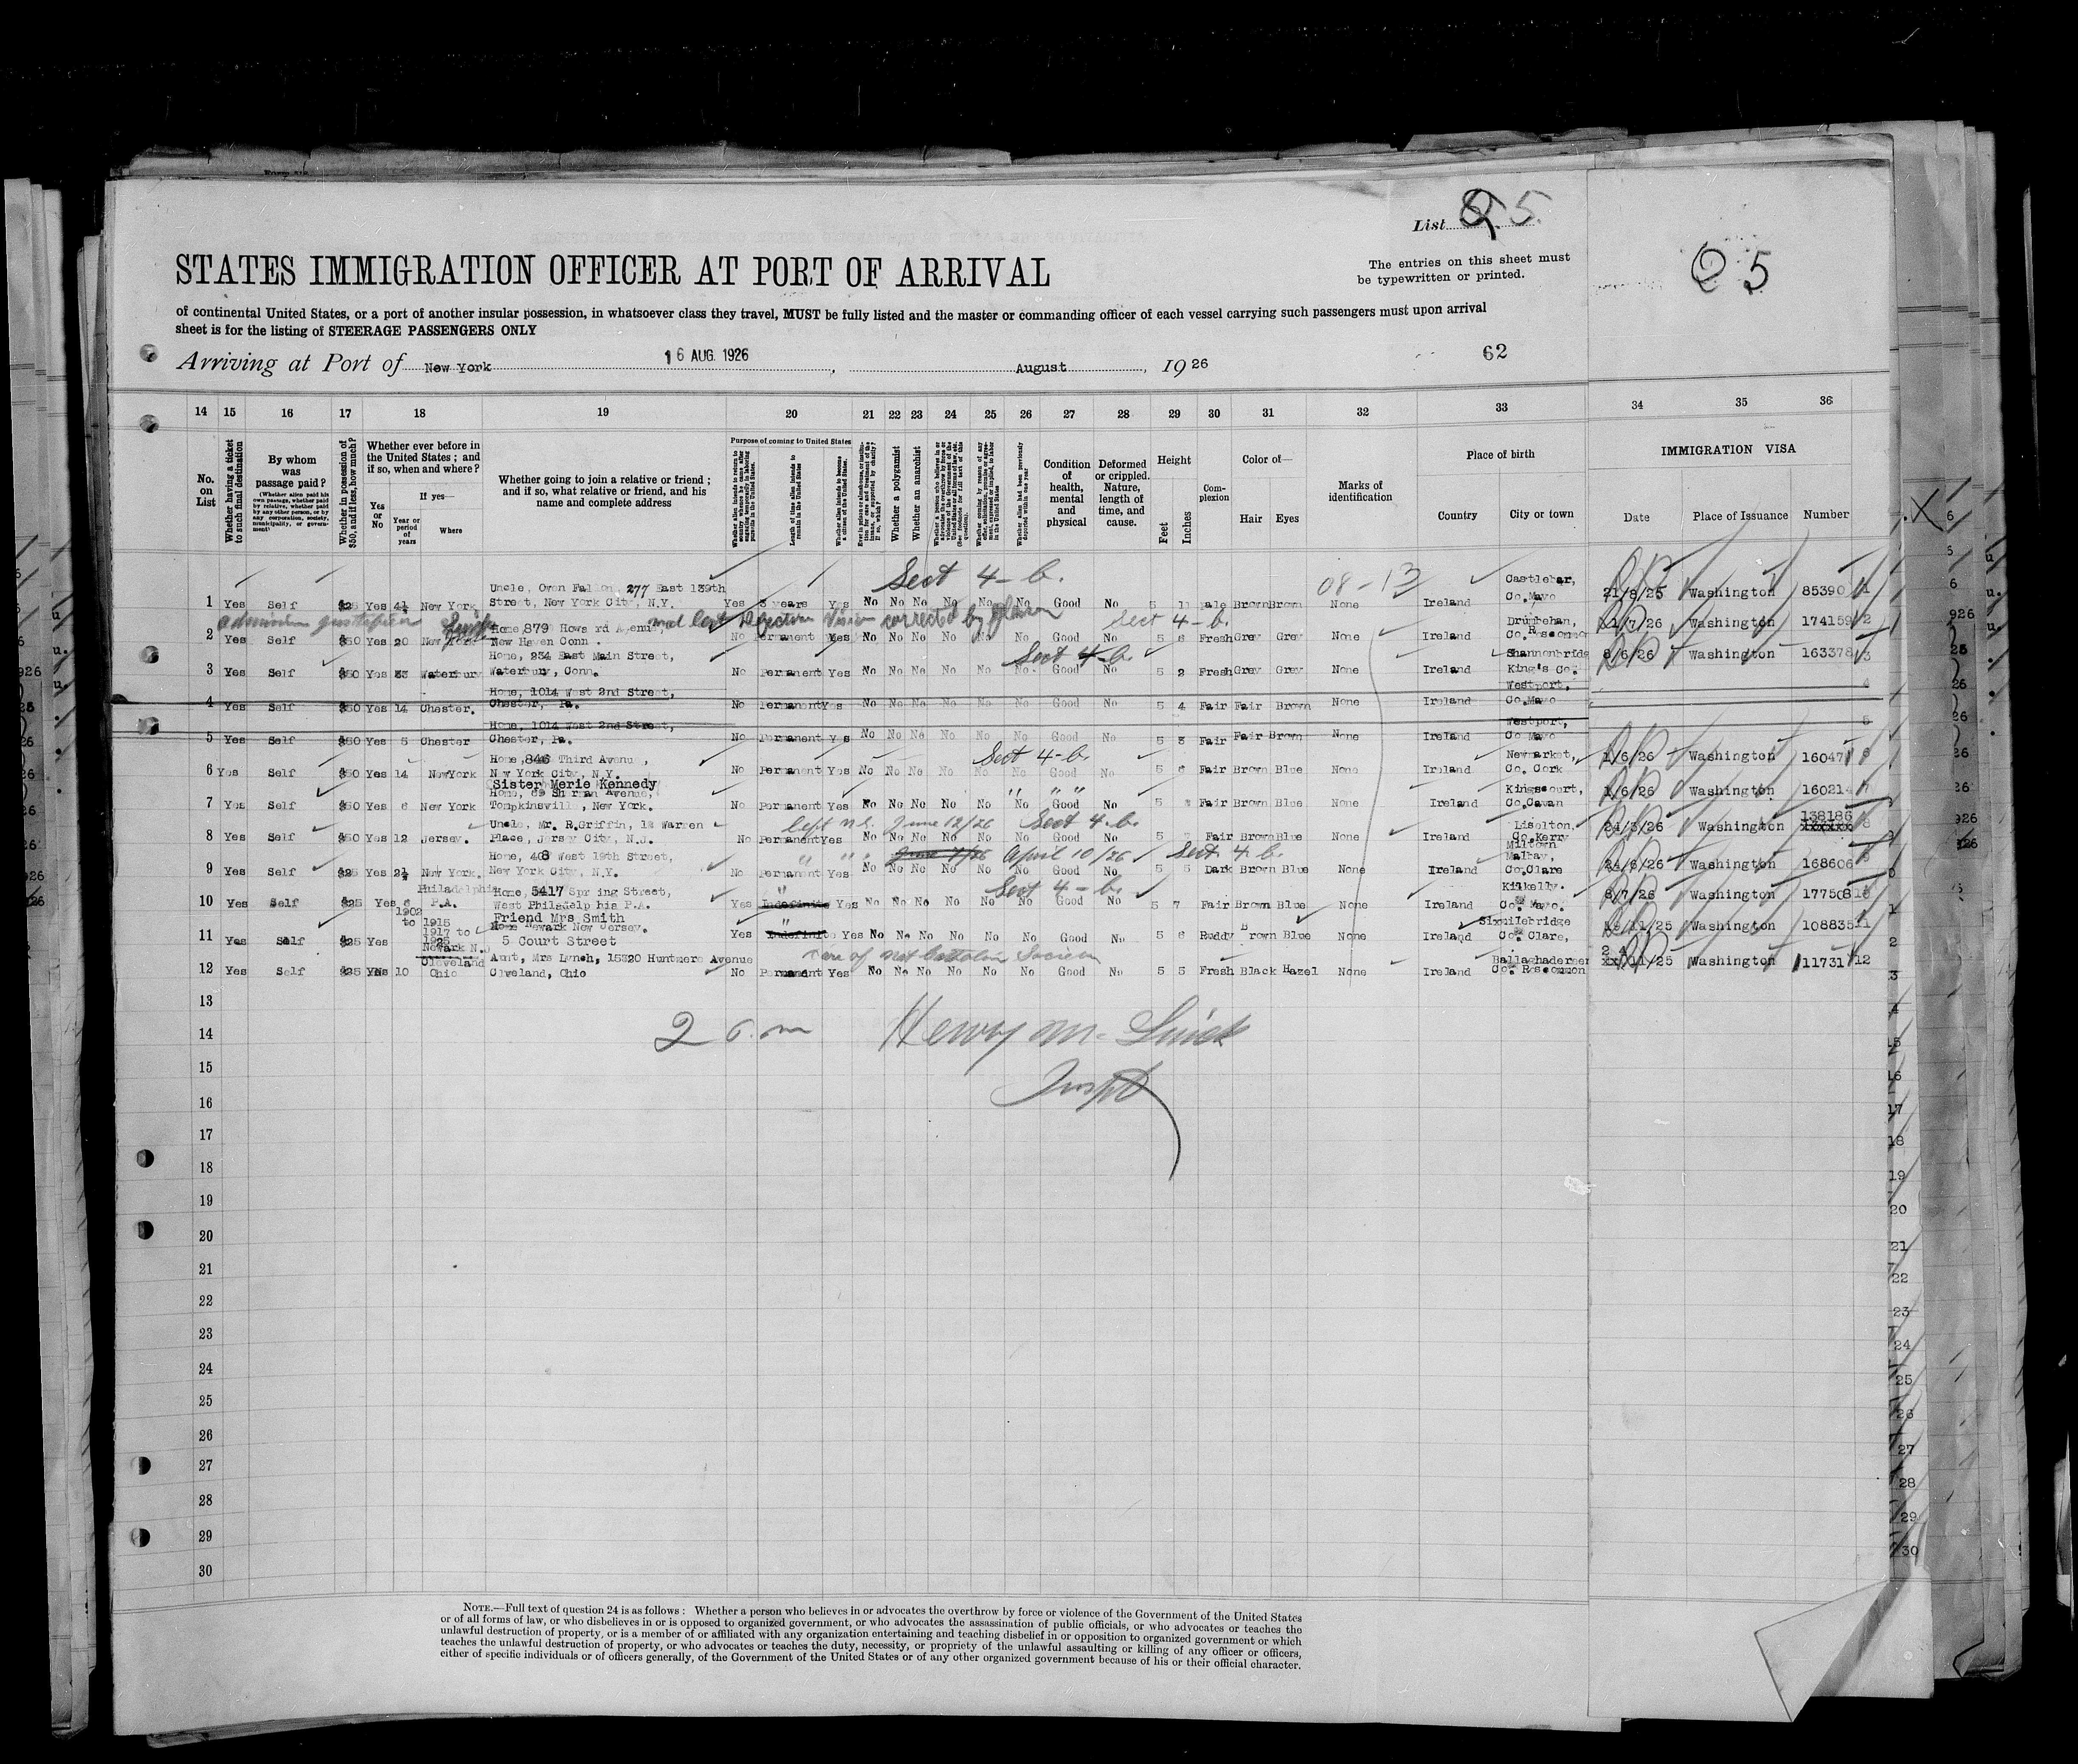 List 25
25
STATES IMMIGRATION OFFICER AT PORT OF ARRIVAL
The entries on this sheet must
be typewritten or printed.
of continental United States, or a port of another insular possession, in whatsoever class they travel, MUST be fully listed and the master or commanding officer of each vessel carrying such passengers must upon arrival
sheet is for the listing of STEERAGE PASSENGERS ONLY
Arriving at Port of New York 16 AUG. 1926, August, 1926 62
14 15 16 17 18 19 20 21 22 23 24 25 26 27 28 29 30 31 32 33 34 35 36
No. on List
Whether having a ticket to such final destination
By whom was passage paid?
(Whether alien paid his own passage, whether paid by relative, whether paid by any other person, or by any corporation, society, municipality, or government)
Whether in possession of $50, and if less, how much?
Whether ever before in the United States; and if so, when and where?
Yes or No
If yes—
Year or period of years
Where
Whether going to join a relative or friend; and if so, what relative or friend, and his name and complete address
Purpose of coming to United States
Length of time alien intends to remain in the United States
Whether alien intends to become a citizen of the United States.
Whether a polygamist
Whether an anarchist
Whether alien had been previously deported within one year
Condition of health, mental and physical
Deformed or crippled. Nature, length of time, and cause.
Height
Feet
Inches
Complexion
Color of—
Hair Eyes
Marks of identification
Place of birth
Country City or town
IMMIGRATION VISA
Date Place of Issuance Number
Sect 4-b.
08-13
Uncle, Owen Fallon, 277 East 139th Castlebar,
1 Yes Self $25 Yes 4½ New York Street, New York City, N.Y. Yes 3 years Yes No No No No No No Good No 5 11 Pale Brown Brown None Ireland Co. Mayo 21/8/25 Washington 85390 1
vision corrected by glasses Sect 4-b.
Home, 879 Howard Avenue,
2 Yes Self $50 Yes 20 New York New Haven Conn. No Permanent Yes No No No No No No Good No 5 6 Fresh Grey Grey None Ireland Co. Roscommon /7/26 Washington 174159 2
Sect 4-b.
Home, 234 East Main Street, Shannonbridge
3 Yes Self $50 Yes 33 Waterbury Waterbury, Conn. No Permanent Yes No No No No No No Good No 5 2 Fresh Grey Grey None Ireland King's Co. 8/6/26 Washington 163378 3
Home, 1014 West 2nd Street, Westport,
4 Yes Self $50 Yes 14 Chester. Chester, Pa. No Permanent Yes No No No No No No Good No 5 4 Fair Fair Brown None Ireland Co. Mayo 4
Home, 1014 West 2nd Street, Westport,
5 Yes Self $50 Yes 5 Chester Chester, Pa. No Permanent Yes No No No No No No Good No 5 3 Fair Fair Brown None Ireland Co Mayo 5
Sect 4-b.
Home, 846 Third Avenue, Newmarket,
6 Yes Self $50 Yes 14 New York New York City, N.Y. No Permanent Yes No No No No No No Good No 5 6 Fair Brown Blue None Ireland Co. Cork 1/6/26 Washington 160471 6
Sister Merie Kennedy
Home, 69 Sherman Avenue, " " " Kingscourt,
7 Yes Self $50 Yes 6 New York Tompkinsville, New York. No Permanent Yes No No No No No No Good No 5 Fair Brown Blue None Ireland Co. Cavan 1/6/26 Washington 160214 7
left U.S. June 12/26 Sect 4-b.
Uncle, Mr. R. Griffin, 12 Warren Liselton, 138186
8 Yes Self $50 Yes 12 Jersey. Place, Jersey City, N.J. No Permanent Yes No No No No No No Good No 5 Fair Brown Blue None Ireland Co. Kerry 24/3/26 Washington 8
" " " June 7/26 April 10/26 Sect 4-b.
Home, 408 West 19th Street, Miltown Malbay,
9 Yes Self $25 Yes 2½ New York. New York City, N.Y. No Permanent Yes No No No No No No Good No 5 5 Dark Brown Blue None Ireland Co. Clare 24/6/26 Washington 168606 9
Sect 4-b.
Philadelphia Home, 5417 Spring Street, " Kilkelly.
10 Yes Self $25 Yes 6 P.A. West Philadelphia P.A. Yes Indefinite Yes No No No No No No Good No 5 7 Fair Brown Blue None Ireland Co. Mayo. 8/7/26 Washington 177508 10
1902 to 1915 Friend Mrs Smith
1917 to 1925 Home Newark New Jersey. " Sixmilebridge
11 Yes Self $25 Yes Newark N.J 5 Court Street Yes Indefinite Yes No No No No No No Good No 5 6 Ruddy Brown Blue None Ireland Co. Clare, 19/11/25 Washington 108835 11
Care of Society
Cleveland Aunt, Mrs Lynch, 15320 Huntmere Avenue Ballaghadereen 24
12 Yes Self $25 Yes 10 Ohio Cleveland, Ohio No Permanent Yes No No No No No No Good No 5 5 Fresh Black Hazel None Ireland Co. Roscommon /11/25 Washington 11731 12
13
14 Henry M.
15
16 Inspt
17
18
19
20
21
22
23
24
25
26
27
28
29
30
NOTE.—Full text of question 24 is as follows: Whether a person who believes in or advocates the overthrow by force or violence of the Government of the United States
or of all forms of law, or who disbelieves in or is opposed to organized government, or who advocates the assassination of public officials, or who advocates or teaches the
unlawful destruction of property, or is a member of or affiliated with any organization entertaining and teaching disbelief in or opposition to organized government or which
teaches the unlawful destruction of property, or who advocates or teaches the duty, necessity, or propriety of the unlawful assaulting or killing of any officer or officers,
either of specific individuals or of officers generally, of the Government of the United States or of any other organized government because of his or their official character.